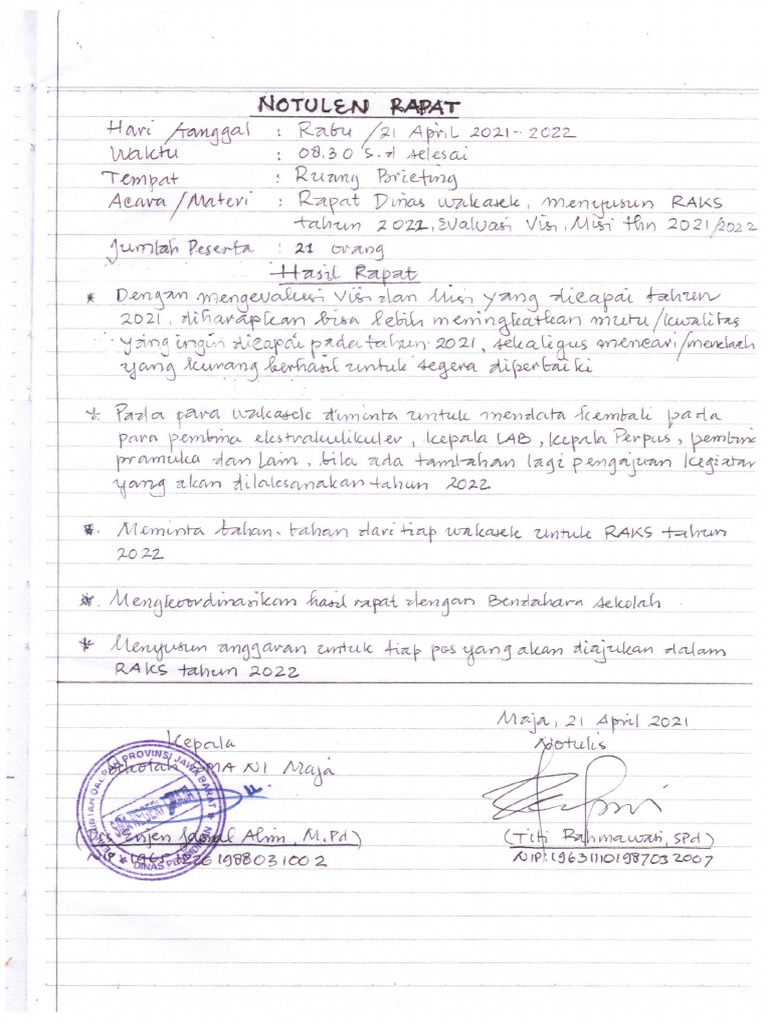 NOTULEN RAPAT
Hari /tanggal : Rabu /21 April 2021-2022
Waktu : 08.30 s.d selesai
Tempat : Ruang Briefing
Acara/Materi : Rapat Dinas wakasek, menyusun RAKS
tahun 2022, Evaluasi Visi, Misi thn 2021/2022
Jumlah Peserta : 21 orang
Hasil Rapat
* Dengan mengevaluasi Visi dan Misi yang dicapai tahun
2021, diharapkan bisa lebih meningkatkan mutu/kwalitas
yang ingin dicapai pada tahun 2021, sekaligus mencari/menelaah
yang kurang berhasil untuk segera diperbaiki
* Pada para wakasek diminta untuk mendata kembali pada
para pembina ekstrakulikuler, kepala LAB, kepala Perpus, pembina
pramuka dan Lain, bila ada tambahan lagi pengajuan kegiatan
yang akan dilaksanakan tahun 2022
* Meminta bahan-bahan dari tiap wakasek untuk RAKS tahun
2022
* Mengkoordinasikan hasil rapat dengan Bendahara sekolah
* Menyusun anggaran untuk tiap pos yang akan diajukan dalam
RAKS tahun 2022
Maja, 21 April 2021
Kepala
Notulis
Sekolah SMA N1 Maja
PEMERINTAH DAERAH PROVINSI JAWA BARAT
DINAS PENDIDIKAN
Alim, M.Pd)
(Titi Rahmawati, SPd)
198803 1002
NIP: 196311101987032007